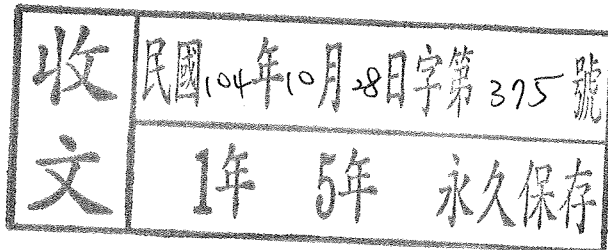 收文
民國104年10月28日字第375號
1年 5年 永久保存